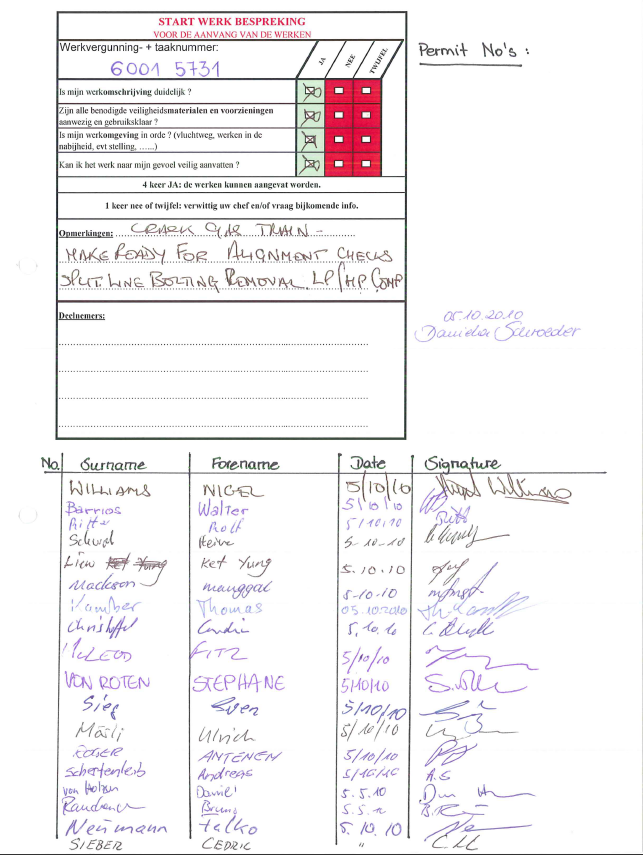 START WERK BESPREKING
VOOR DE AANVANG VAN DE WERKEN
Werkvergunning- + taaknummer:
6001 5731
JA
NEE
TWIJFEL
Permit No's :
Is mijn werkomschrijving duidelijk ?
Zijn alle benodigde veiligheidsmaterialen en voorzieningen
aanwezig en gebruiksklaar ?
Is mijn werkomgeving in orde ? (vluchtweg, werken in de
nabijheid, evt stelling, …...)
Kan ik het werk naar mijn gevoel veilig aanvatten ?
4 keer JA: de werken kunnen aangevat worden.
1 keer nee of twijfel: verwittig uw chef en/of vraag bijkomende info.
Opmerkingen: CRACK GAS TRAIN -
MAKE READY FOR ALIGNMENT CHECKS
SPLIT LINE BOLTING REMOVAL LP/HP COMP
Deelnemers:
05.10.2010
Daniela Schroeder
No. Surname Forename Date Signature
WILLIAMS NIGEL 5/10/10 Nigel Williams
Barrios Walter 5/10/10
Rolf 5/10/10
Heinz 5-10-10
Liew Ket Yung 5.10.10
Mackson manggal 5.10.10
Kamber Thomas 05.10.2010
Christoffel 5.10.10
McLEOD FITZ 5/10/10
VON ROTEN STEPHANE 5/10/10
Sieg Sven 5/10/10
Ulrich 5/10/10
ANTENEN 5/10/10
Schertenleib Andreas 5/10/10 A.S
von Daniel 5.5.10
Bruno 5.5.10
Neumann talko 5.10.10
SIEBER CEDRIC "